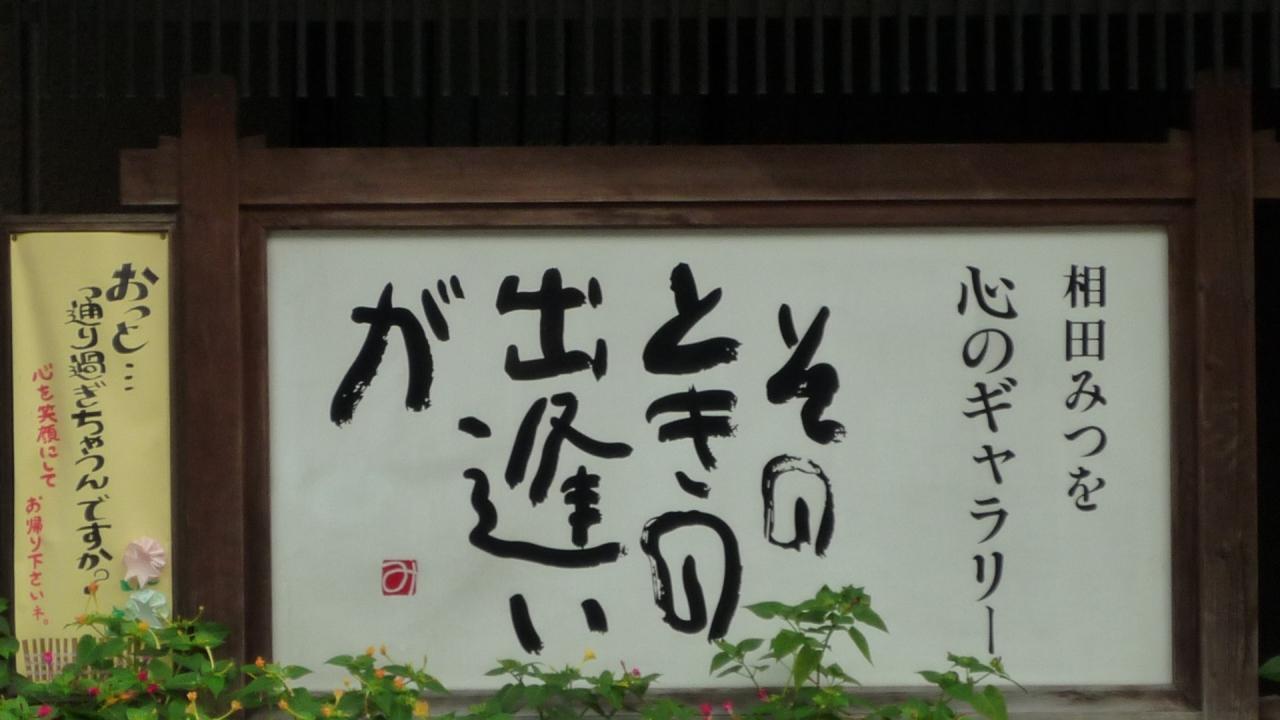 相田みつを
心のギャラリー
その
ときの
出逢い
が
み
おっと…
っ通り過ぎちゃうんですか。
心を笑顔にして お帰り下さいネ。